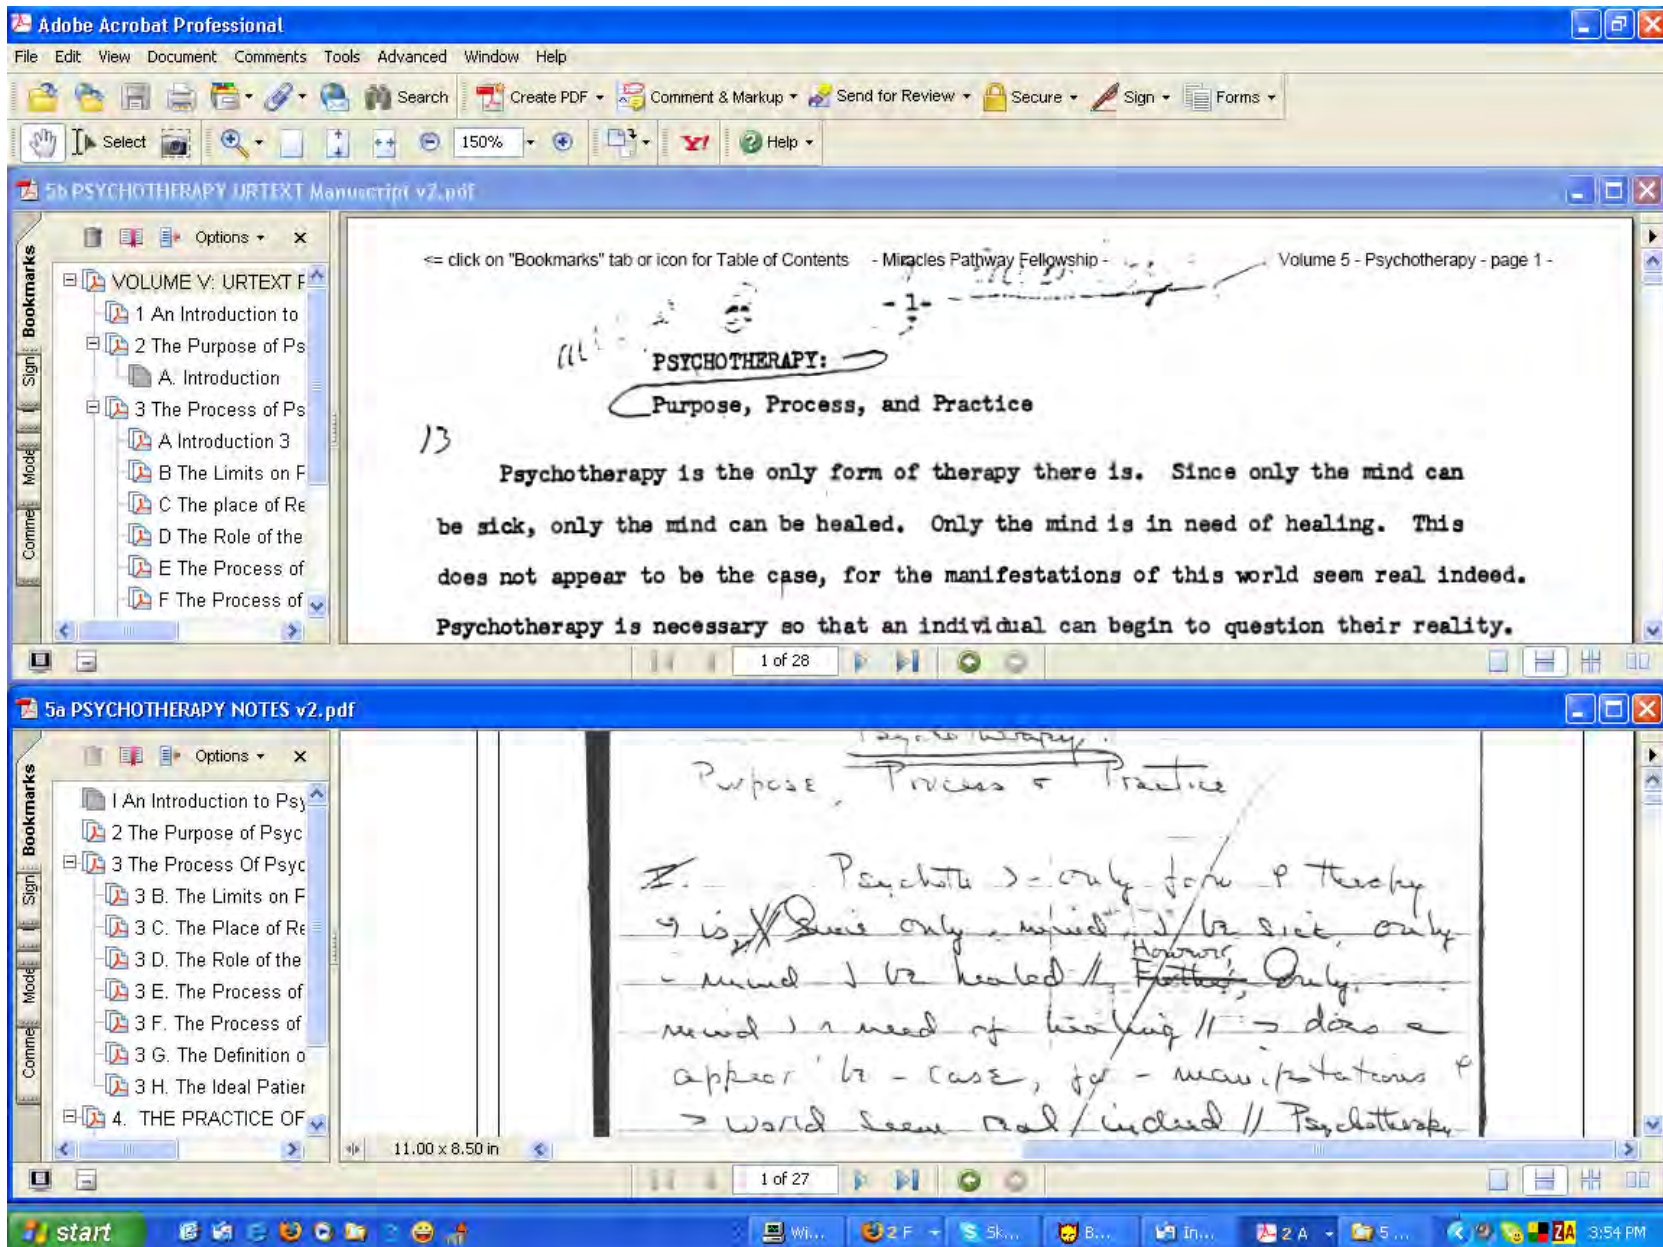 Adobe Acrobat Professional
File Edit View Document Comments Tools Advanced Window Help
Search Create PDF Comment & Markup Send for Review Secure Sign Forms
Select 150% Y! Help
5b PSYCHOTHERAPY URTEXT Manuscript v2.pdf
Bookmarks
Sign
Mode
Comme
Options x
VOLUME V: URTEXT F
1 An Introduction to
2 The Purpose of Ps
A. Introduction
3 The Process of Ps
A Introduction 3
B The Limits on F
C The place of Re
D The Role of the
E The Process of
F The Process of
<= click on "Bookmarks" tab or icon for Table of Contents - Miracles Pathway Fellowship - Volume 5 - Psychotherapy - page 1 -
-1-
PSYCHOTHERAPY:
Purpose, Process, and Practice
13
Psychotherapy is the only form of therapy there is. Since only the mind can
be sick, only the mind can be healed. Only the mind is in need of healing. This
does not appear to be the case, for the manifestations of this world seem real indeed.
Psychotherapy is necessary so that an individual can begin to question their reality.
1 of 28
5a PSYCHOTHERAPY NOTES v2.pdf
Bookmarks
Sign
Mode
Comme
Options x
I An Introduction to Psy
2 The Purpose of Psyc
3 The Process Of Psyc
3 B. The Limits on F
3 C. The Place of Re
3 D. The Role of the
3 E. The Process of
3 F. The Process of
3 G. The Definition o
3 H. The Ideal Patier
4. THE PRACTICE OF
Psychotherapy:
Purpose, Process & Practice
I. only form therapy
is Since only mind be sick, only
mind be healed // However, Only
mind need of healing // does
appear case, for - manifestations
world seem real indeed // Psychotherapy
11.00 x 8.50 in
1 of 27
start Wi... 2 F Sk... B... In... 2 A 5 ... ZA 3:54 PM